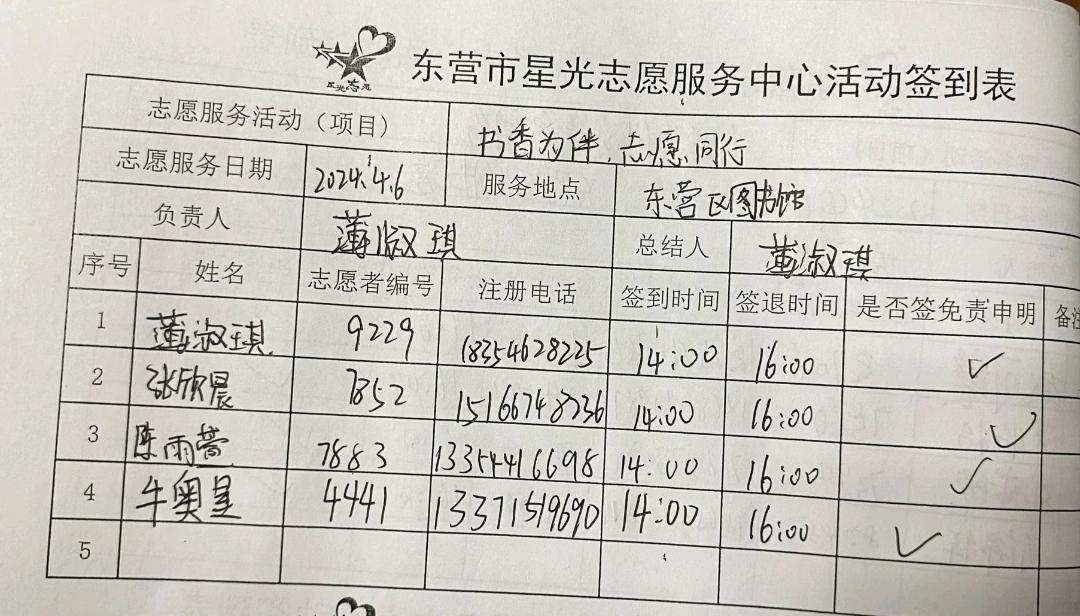 星光志愿
东营市星光志愿服务中心活动签到表
志愿服务活动（项目） 书香为伴，志愿同行
志愿服务日期 2024.4.6 服务地点 东营区图书馆
负责人 薄淑琪 总结人 薄淑琪
序号 姓名 志愿者编号 注册电话 签到时间 签退时间 是否签免责申明 备注
1 薄淑琪 9229 18354628225 14:00 16:00 ✓
2 张欣晨 7852 15166748336 14:00 16:00 ✓
3 陈雨萱 7883 13354416698 14:00 16:00 ✓
4 牛奥星 4441 13371519690 14:00 16:00 ✓
5